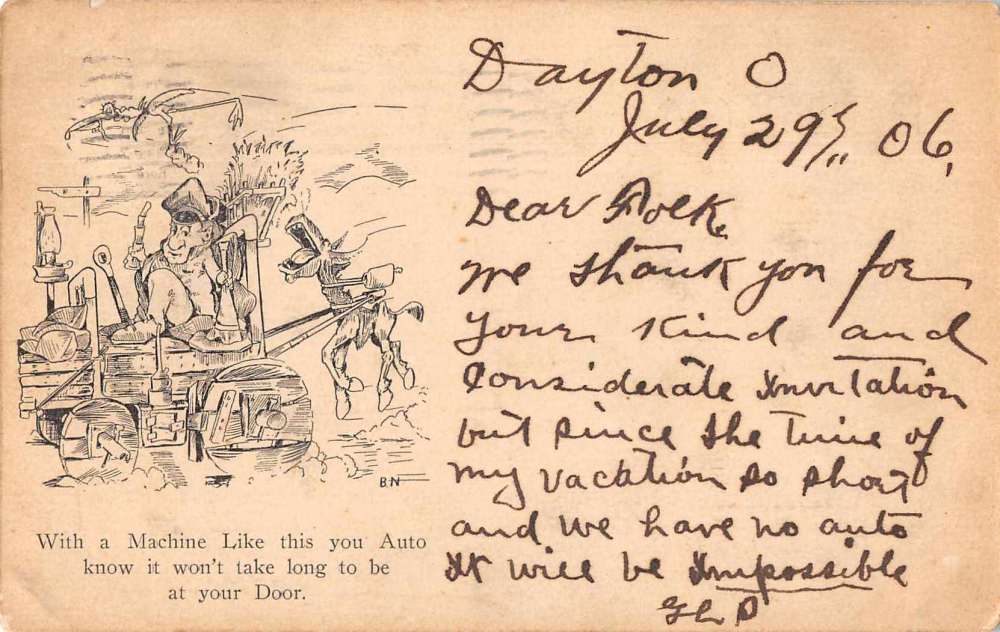 Dayton O
July 29th 06.
Dear Folk,
We thank you for
Your Kind and
Considerate Invitation
but since the time of
my vacation so short
and we have no auto
It will be Impossible
BN
With a Machine Like this you Auto
know it won't take long to be
at your Door.